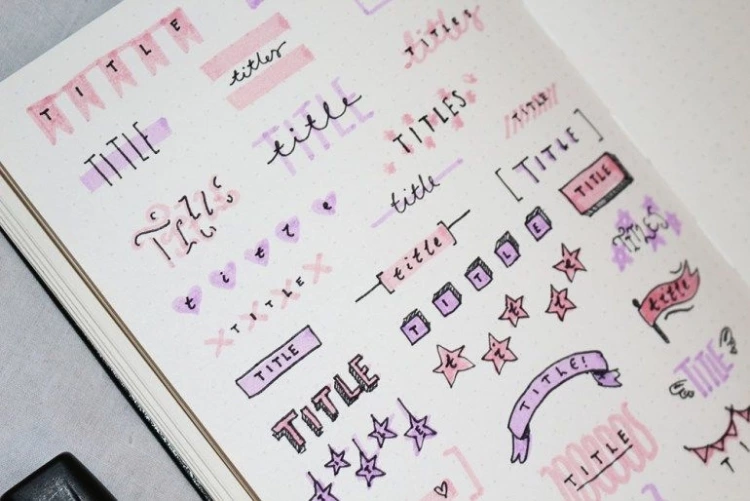 TITLE
titles
Titles
TITLE
title
TITLES
TITLE
TITLE
TITLE
TITLE
title
title
TITLE
title
TITLE
TITLES
title
TITLE
title
TITLE
TITLE!
TITLE
TITLE
TITLE